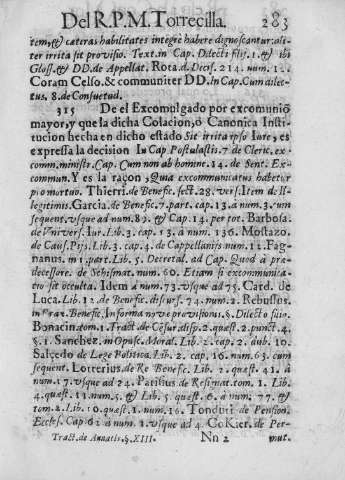 Del R.P.M. Torrecilla. 283
item, & cæteras habilitates integrè habere dignoscantur: aliter
irrita sit provisio. Text. in Cap. Dilecti filij. 1. & ibi
Gloss. & DD. de Appellat. Rota. d. Decis. 214. num. 12.
Coram Celso. & communiter DD. in Cap. Cum dilectus.
8. de Consuetud.
315 De el Excomulgado por excomuniõ
mayor, y que la dicha Colacion, ò Canonica Institucion
hecha en dicho estado Sit irrita ipso Iure, es
expressa la decission In Cap. Postulastis. 7. de Cleric. excomm.
ministr. Cap. Cum non ab homine. 14. de Sent. Excommun.
Y es la raçon, Quia excommunicatus habetur
pro mortuo. Thierri. de Benefic. sect. 28. vers. Item de Illegitimis.
Garcia. de Benefic. 7. part. cap. 13. à num. 3. cum
sequent. vsque ad num. 89. & Cap. 14. per tot. Barbosa.
de Vnivers. Iur. Lib. 3. cap. 13. à num. 136. Mostazo.
de Caus. Pijs. Lib. 3. cap. 4. de Cappellanijs num. 12. Fagnanus.
in 1. part. Lib. 5. Decretal. ad Cap. Quod à prædecessore.
de Schismat. num. 60. Etiam si excommunicatio
sit occulta. Idem à num. 73. vsque ad 75. Card. de
Luca. Lib. 12. de Benefic. discurs. 74. num. 2. Rebuffus.
in Prax. Benefic. Informa novæ provisionis. §. Dilecto filio.
Bonacin. tom. 1. Tract. de Cẽsur. disp. 2. quæst. 2. punct. 4.
§. 1. Sanchez. in Opusc. Moral. Lib. 2. cap. 2. dub. 10.
Salçedo de Lege Politica. Lib. 2. cap. 16. num. 63. cum
sequent. Lotterius de Re Benefic. Lib. 2. quæst. 41. à
num. 17. vsque ad 24. Parisius de Resignat. tom. 1. Lib.
4. quæst. 11. num. 5. & Lib. 5. quæst. 6. à num. 77. &
tom. 2. Lib. 10. quæst. 1. num. 16. Tonduti de Pension.
Eccles. Cap. 62. à num. 1. vsque ad 4. CoKier. de Per-
Tract. de Annatis. §. XIII. Nn 2 mut.